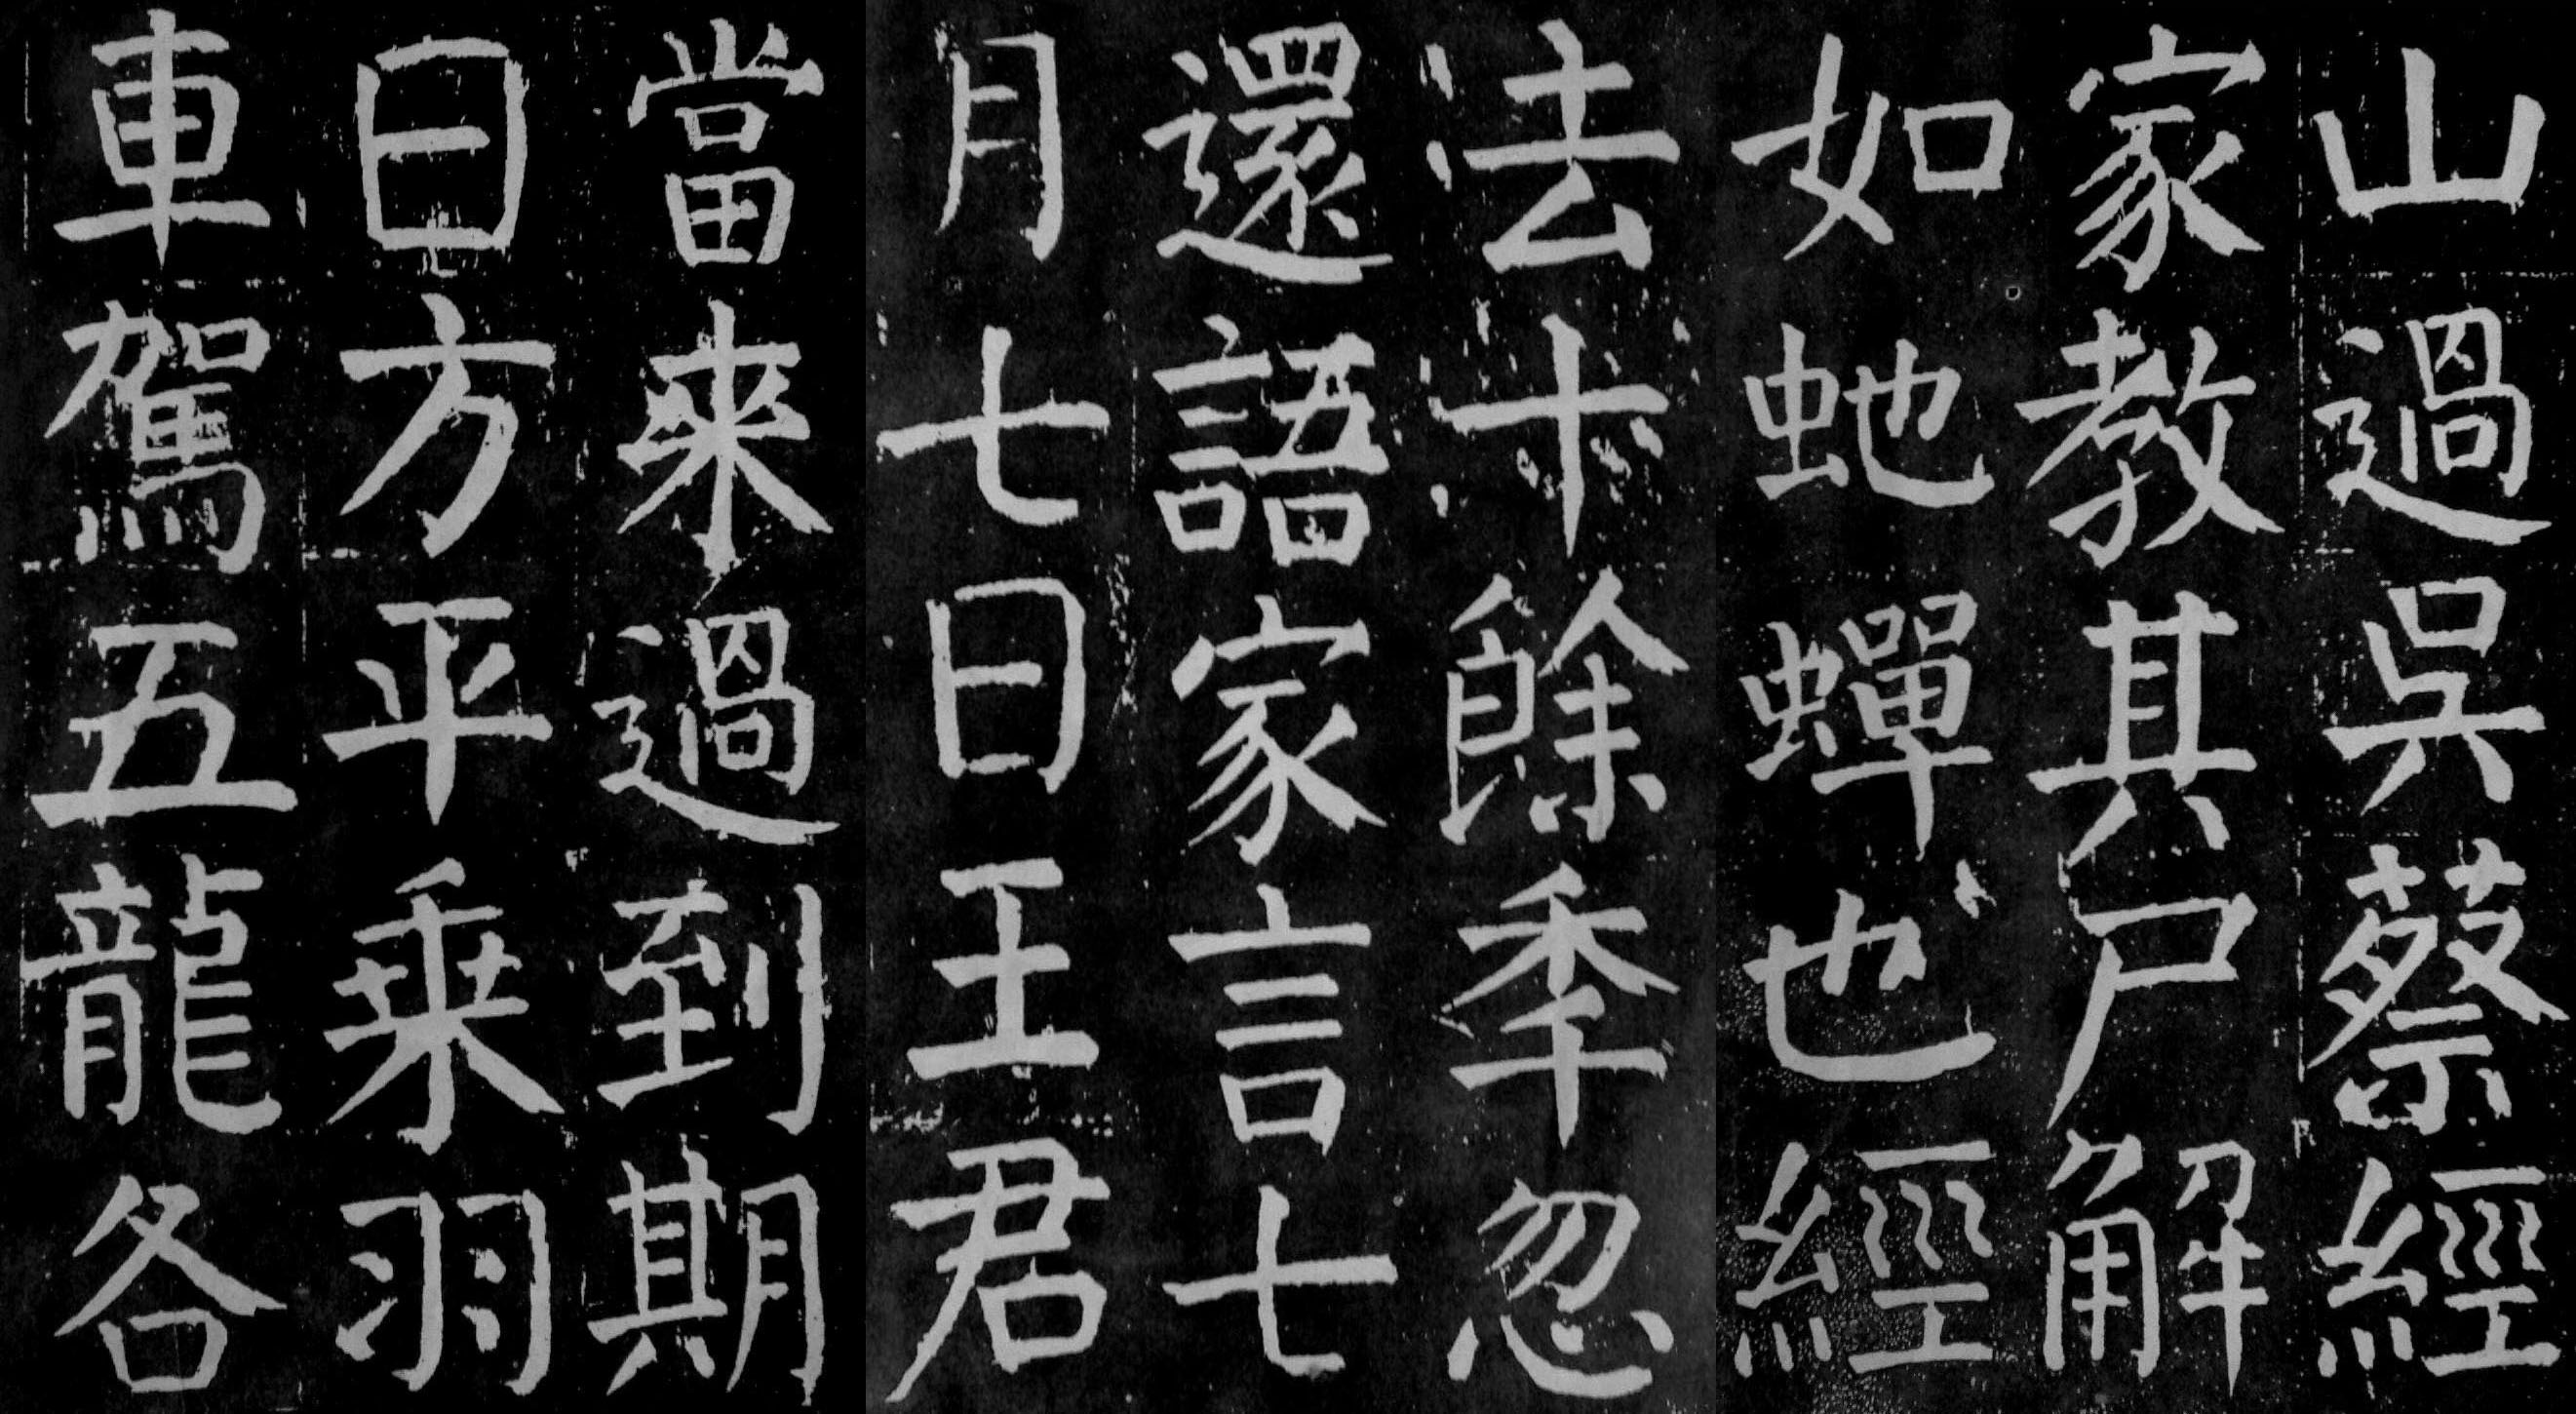 山過吳蔡經
家教其尸解
如虵蟬也經
去十餘秊忽
還語家言七
月七日王君
當來過到期
日方平乗羽
車駕五龍各